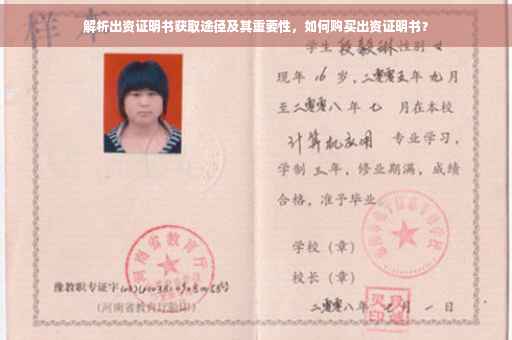 解析出资证明书获取途径及其重要性，如何购买出资证明书？
样本
学生 段毅琳 性别 女
现年 16 岁，二零零五年 九月
至二零零八年 七 月在本校
计算机应用 专业学习，
学制 三年，修业期满，成绩
合格，准予毕业。
学校（章）
校长（章）
二零零八年 七 月 一 日
河南省教育厅
豫教职专证字
（河南省教育厅验印）